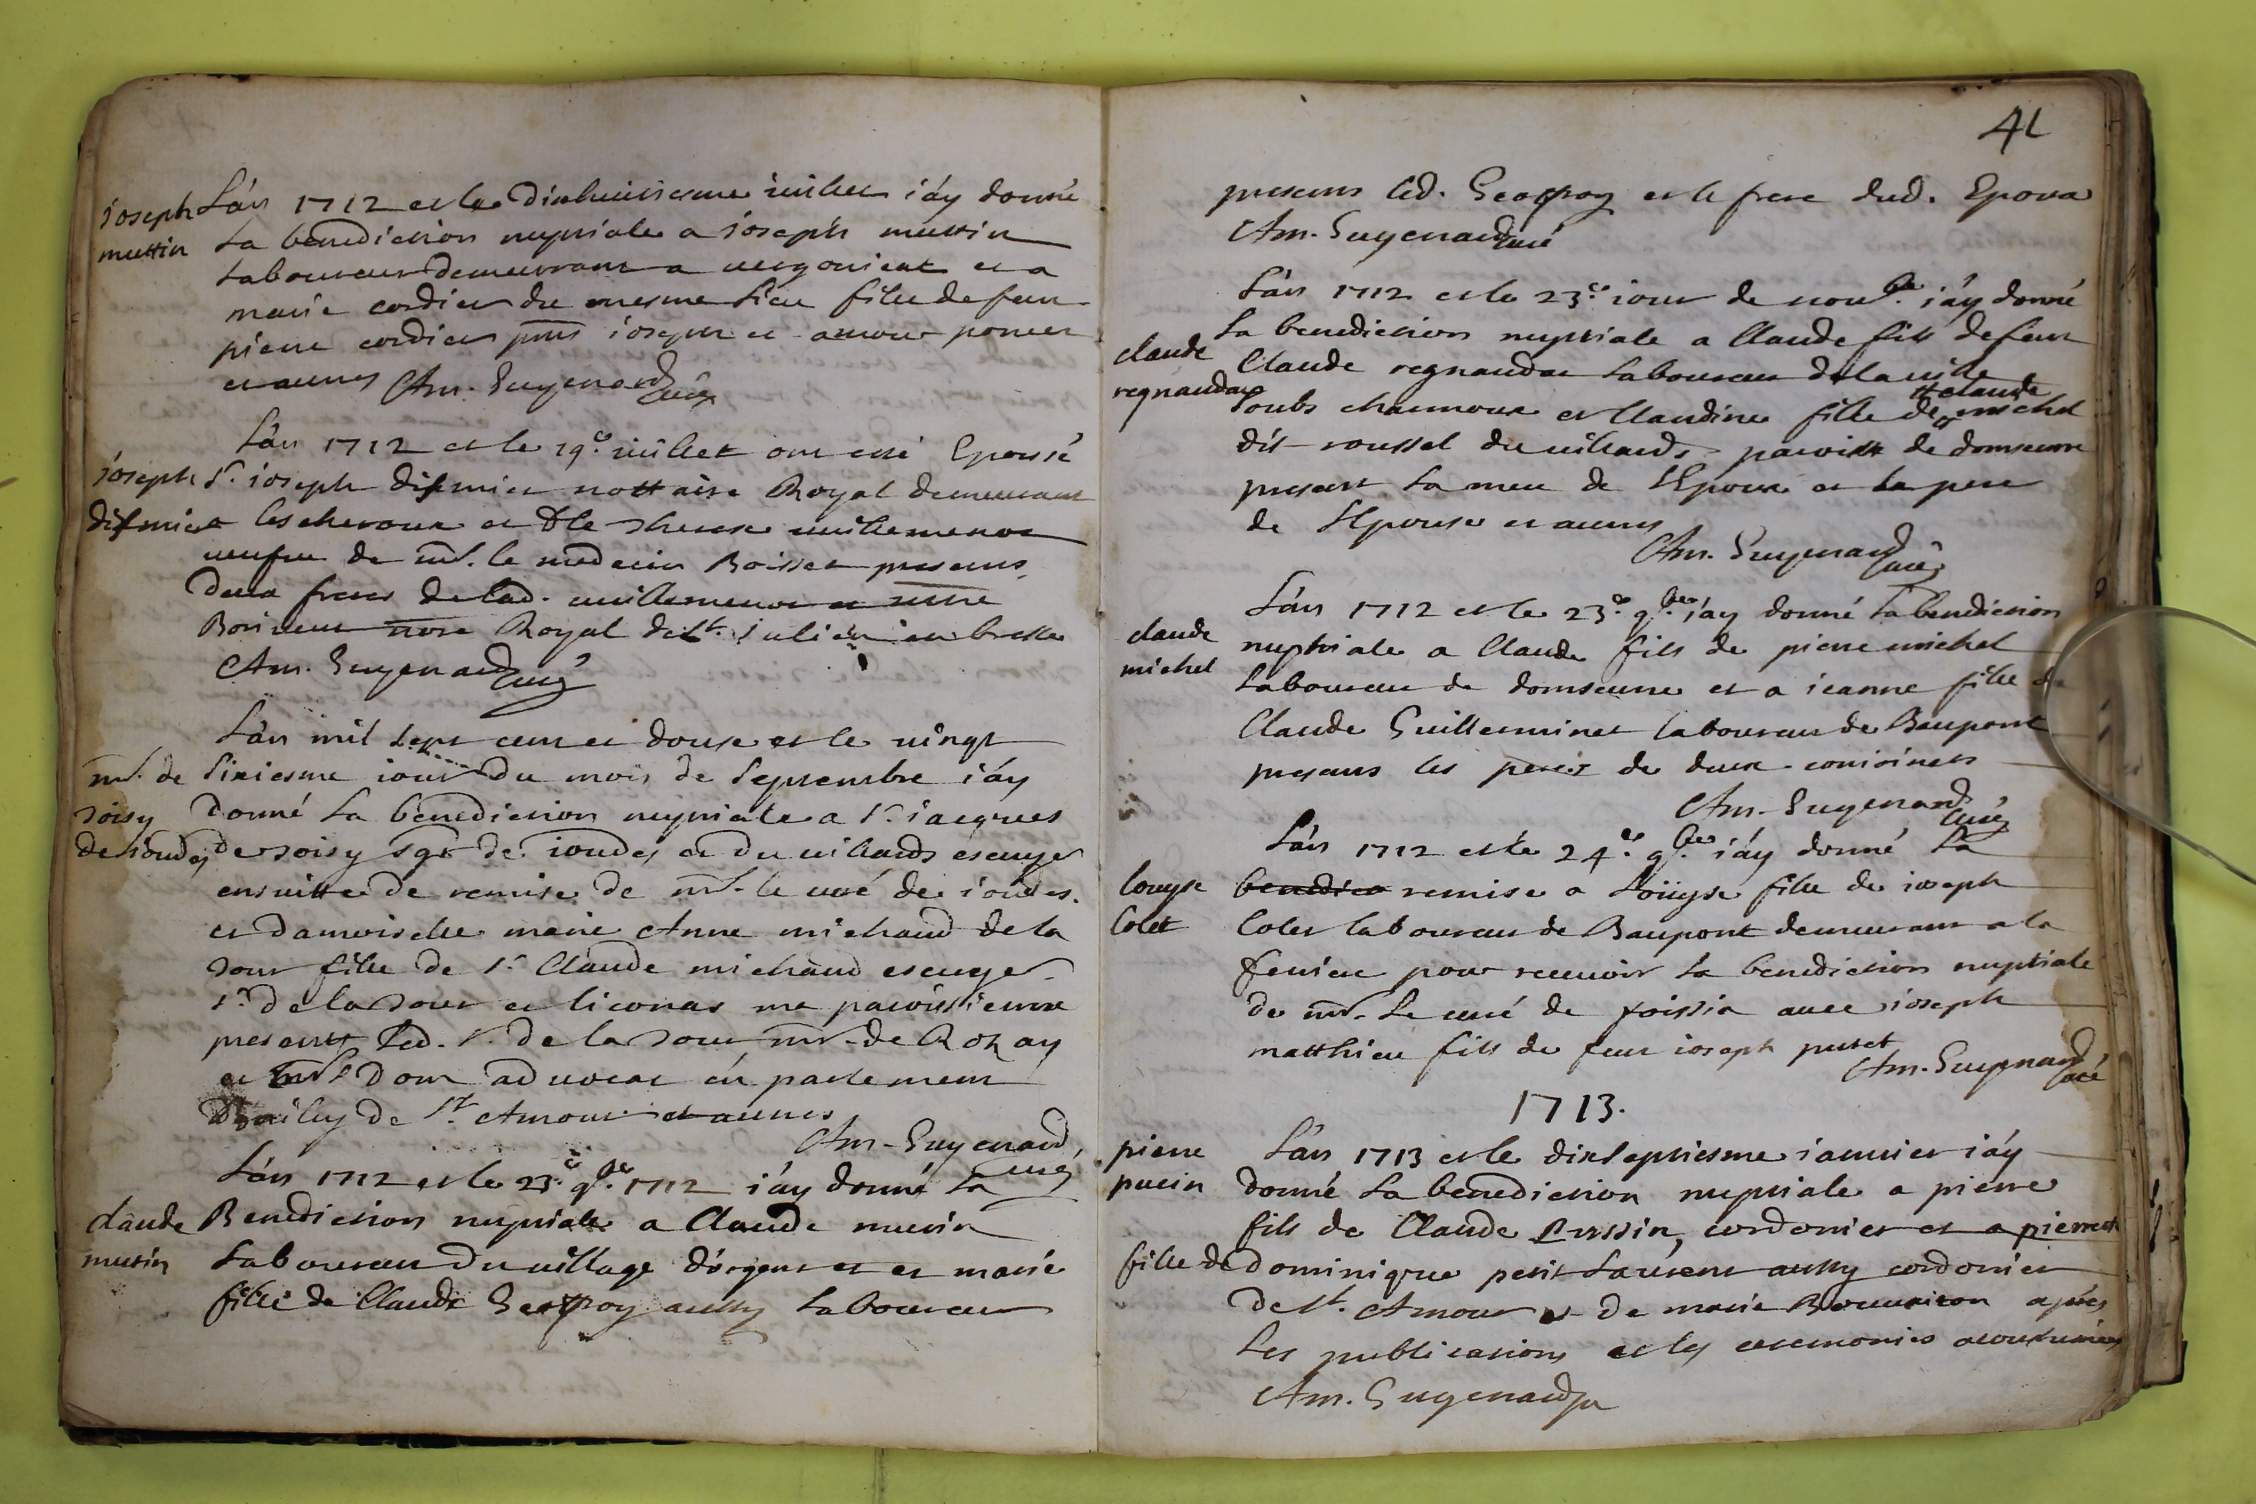 joseph
muttin
L'an 1712 et le dixhuitiesme iuillet i'ay donné
la benediction nuptiale a ioseph muttin
laboureur demeurant a uergonjeat et a
marie cordier du mesme lieu fille de feu
pierre cordier pnts ioseph et amour poncet
et autres Am. Guyenard curé
joseph
L'an 1712 et le 19e iuillet ont esté Epousé
Sr. ioseph nottaire Royal demeurant
les cheroux et Dlle therese uuillemenot
ueufue de mr. le medecin Boisset presents
deux freres de lad. uuillemenot et
nore Royal de St. iulien en bresse
Am. Guyenard curé
mr. de
Toisy
de ioudes
L'an mil sept cent et douse et le uingt
sixiesme iour du mois de Septembre i'ay
donné la benediction nuptiale a Sr. iacques
de Toisy sgr de ioudes et du uillards escuyer
ensuitte de remise de mr. le curé de ioudes.
et damoiselle marie Anne michaud de la
Tour fille de Sr Claude michaud escuyer
Sr. de la Tour et liconas ma paroissienne
presents led. Sr. de la Tour mr. de
et mr. Dom aduocat en parlement
Bailly de St. Amour et autres
Am. Guyenard
curé
claude
mutin
L'an 1712 et le 23e 9bre. 1712 i'ay donné la
Benediction nuptiale a Claude mutin
laboureur du uillage d'orgent et et marie
fille de Claude Geofroy aussy laboureur
41
presens led. Geofroy et le frere dud. Epoux
Am. Guyenard curé
claude
regnaudat
L'an 1712 et le 23e iour de nou.bre i'ay donné
la benediction nuptiale a Claude fils de feu
Claude regnaudat laboureur de la uille
soubs charmoux et Claudine fille de claude michel
dit roussel du uillards paroisse de domseure
present la mere de l'Epoux et le pere
de l'Epouse et autres
Am. Guyenard curé
claude
michel
L'an 1712 et le 23e 9bre. i'ay donné la benediction
nuptiale a Claude fils de pierre michel
laboureur de domseure et a ieanne fille de
Claude Guilleminet laboureur de Beaupont
presens les peres de deux conioinets
Am. Guyenard
curé
louyse
Colet
L'an 1712 et le 24e 9bre. i'ay donné la
benedicti remise a Loüyse fille de ioseph
Colet laboureur de Baupont demeurant a la
pour receuoir la benediction nuptiale
de mr. le curé de foissia auec ioseph
matthieu fils de feu ioseph putet
Am. Guyenard curé
1713.
pierre
pucin
L'an 1713 et le dixseptiesme ianuier i'ay
donné la benediction nuptiale a pierre
fils de Claude Pussin, cordonier et a pierrette
fille de dominique petit Laurent aussy cordonier
de St. Amour et de marie apres
les publications et les ceremonies acoutumées
Am. Guyenard